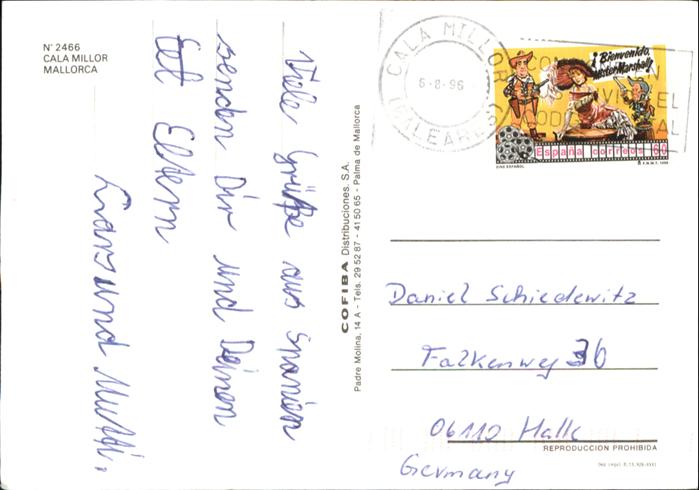 N° 2466
CALA MILLOR
MALLORCA
Viele Grüße aus Spanien
senden Dir und Deinen
Eltern
und Mutti.
COFIBA Distribuciones, S.A.
Padre Molina, 14 A - Tels. 29 52 87 - 41 50 65 - Palma de Mallorca
CALA MILLOR
6-8-96
(BALEARES)
¡Bienvenido,
Mister Marshall!
España correos 60
CINE ESPAÑOL
Daniel Schiedewitz
Falkenweg 36
06110 Halle
Germany
REPRODUCCION PROHIBIDA